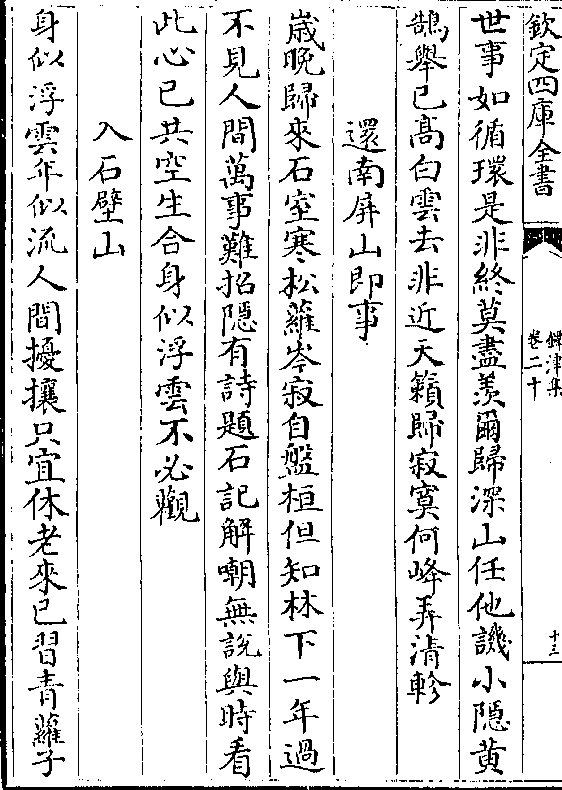 欽定四庫全書
鐔津集
卷二十
十三
世事如循環是非終莫盡羨爾歸深山任他譏小隱黄
鵠舉已髙白雲去非近天籟歸寂寞何峰弄清軫
還南屏山即事
嵗晚歸來石室寒松蘿岑寂自盤桓但知林下一年過
不見人間萬事難招隱有詩題石記解嘲無說與時看
此心已共空生合身似浮雲不必觀
入石壁山
身似浮雲年似流人間擾攘只宜休老來已習青蘿子